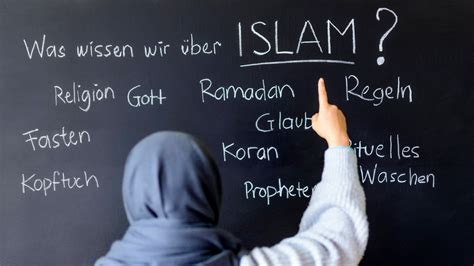 Was wissen wir über ISLAM?
Religion Gott Ramadan Regeln
Glaub
Fasten Koran ituelles
Kopftuch Propheten Waschen